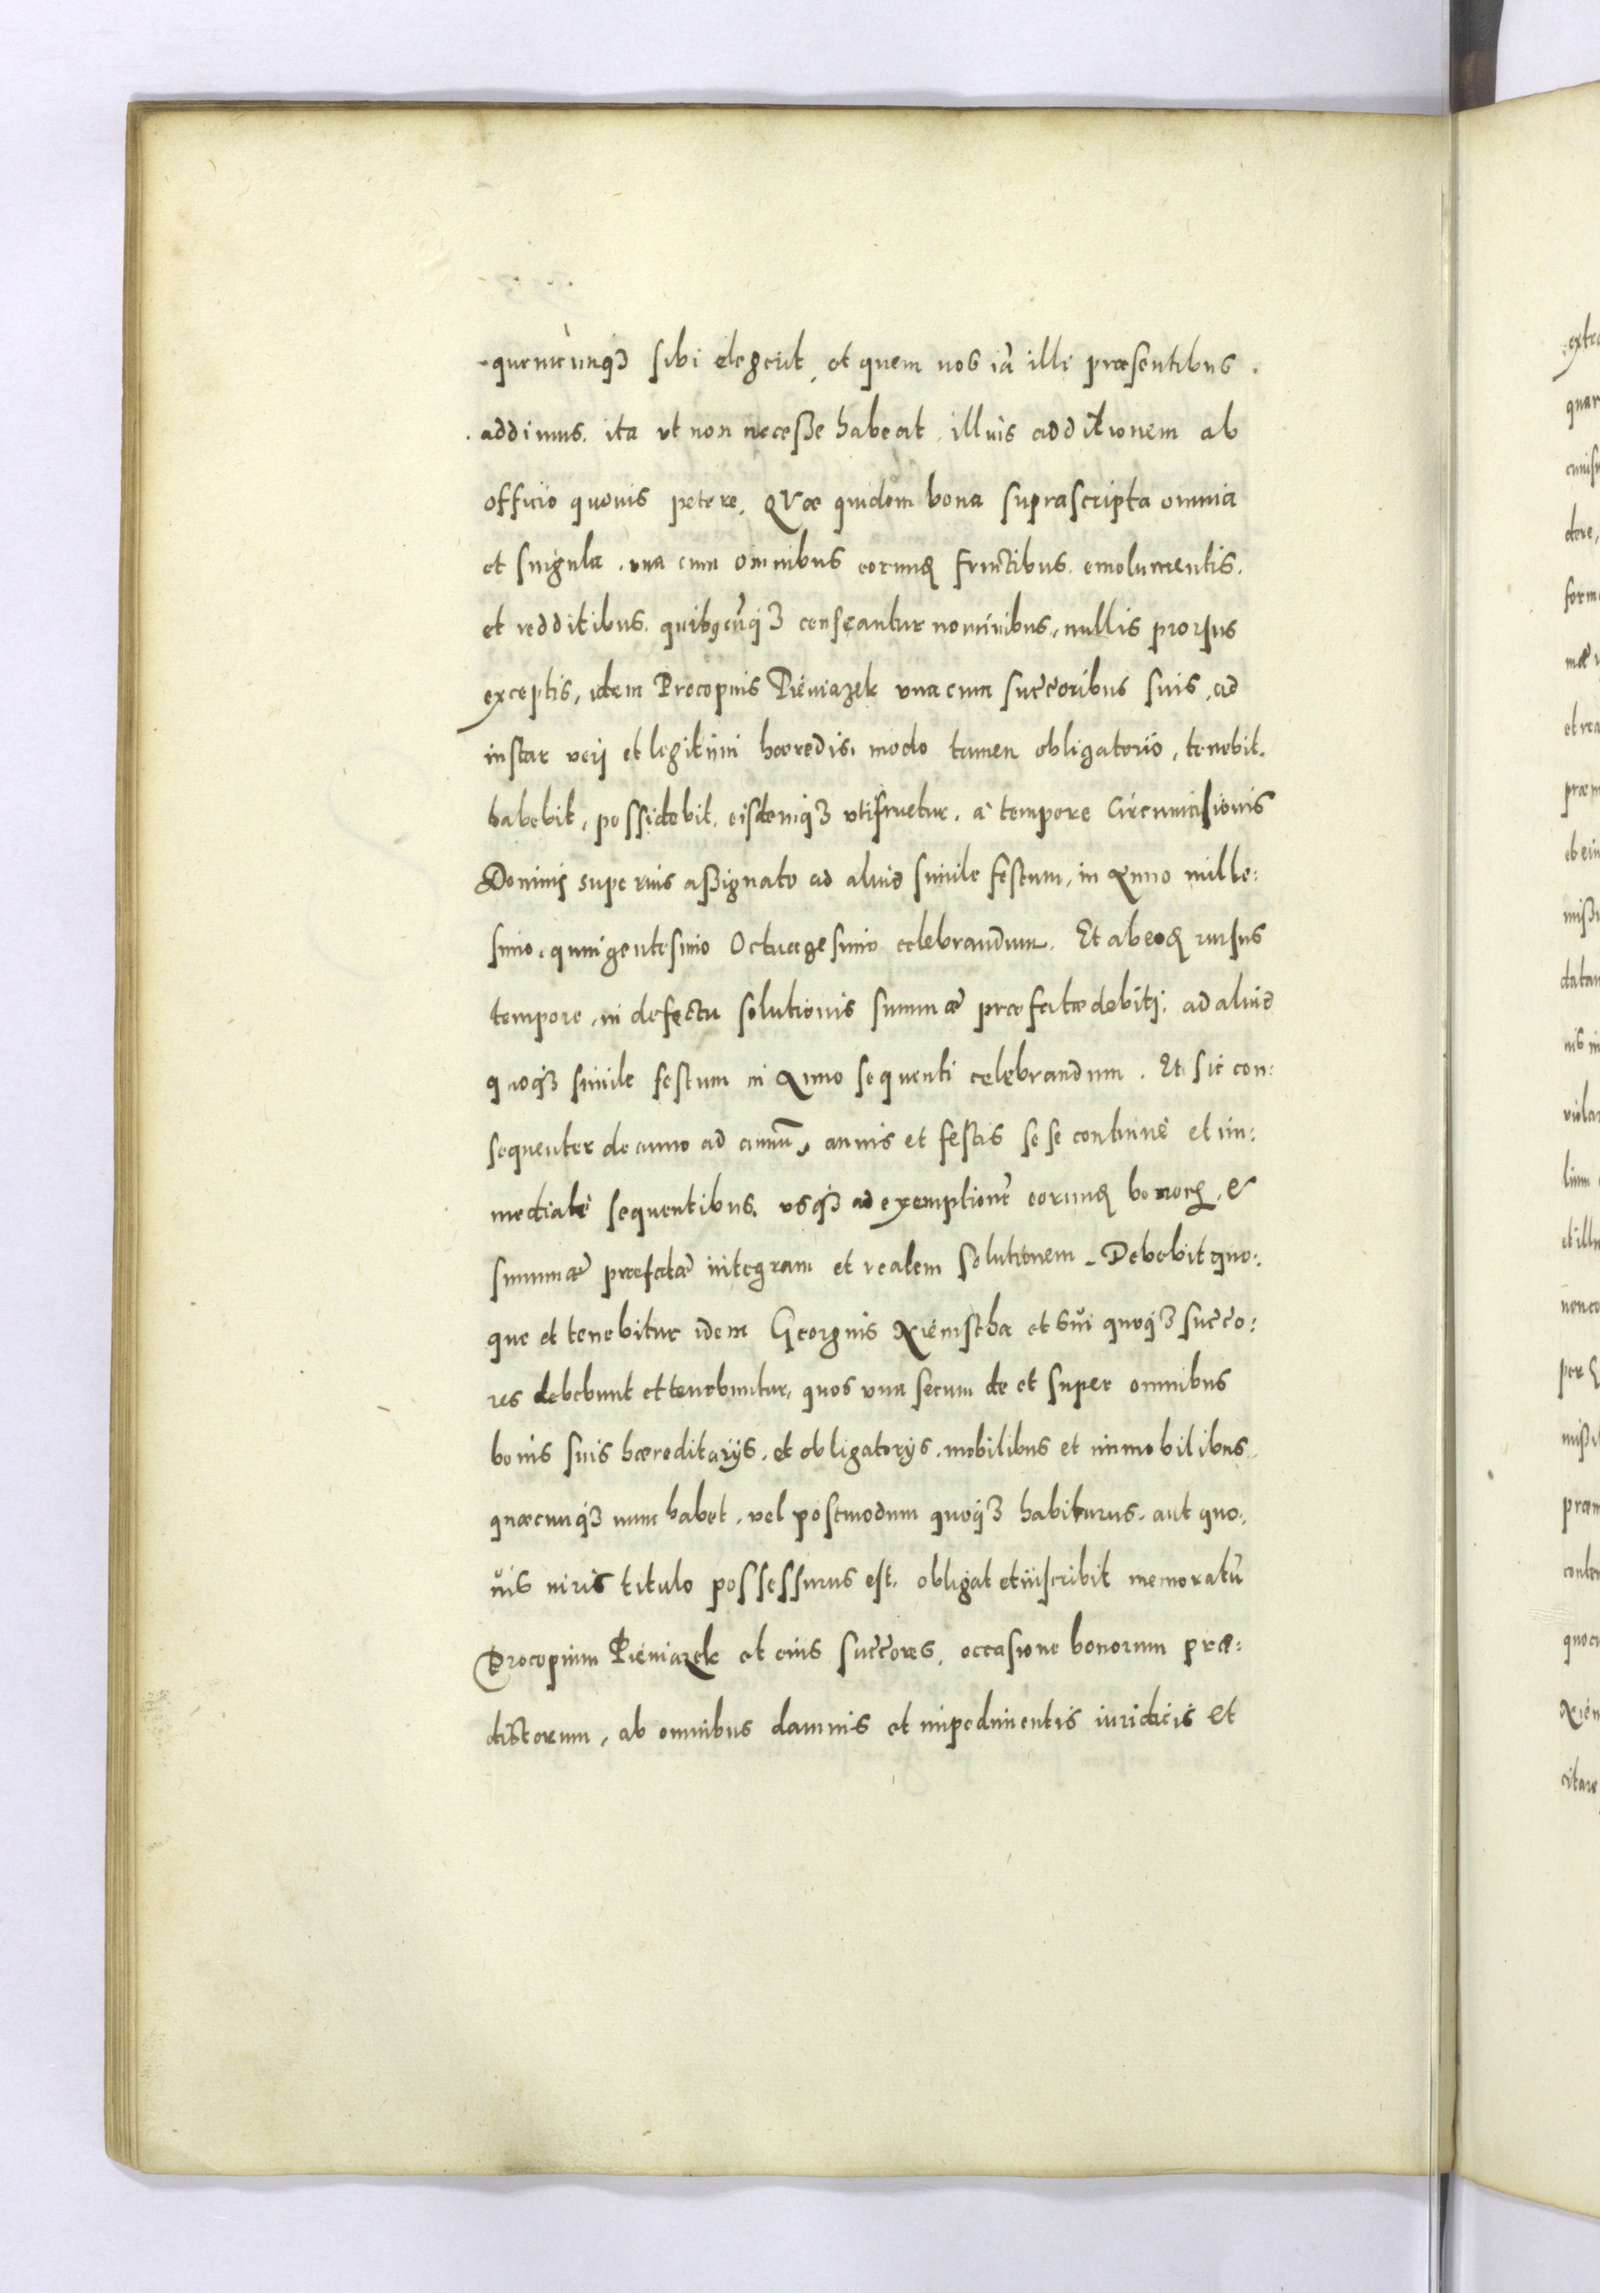 quemcunqꝫ sibi elegerit, et quem nos iã illi præsentibus.
addimus. ita ut non necesse habeat. illius additionem ab
officio quovis petere. QVæ quidem bona suprascripta omnia
et singula. una cum omnibus eorundꝫ fructibus. emolumentis.
et redditibus. quibꝯcũqꝫ censeantur nominibus, nullis prorsus
exceptis, idem Procopius Pieniazek una cum succ̃oribus suis, ad
instar verj et legitimi hæredis. modo tamen obligatorio, tenebit.
habebit, possidebit. eisdemqꝫ utifruetur. a tempore Circumcisionis
Dominj superius assignato ad aliud simile festum, in Anno mille:
simo. quingentesimo Octuagesimo celebrandum. Et ab eodꝫ rursus
tempore, in defectu solutionis summæ præfatæ debitj. ad aliud
quoqꝫ simile festum in Anno sequenti celebrandum. Et sic con:
sequenter de anno ad annũ, annis et festis se se continuè et im:
mediatè sequentibus. usqꝫ ad exemptionẽ eorundꝫ bonorꝫ, &
summæ præfatæ integram et realem solutionem. Debebit quo:
que et tenebitur idem Georgius Niemstha et sui quoqꝫ succ̃o:
res debebunt et tenebuntur, quos una secum de et super omnibus
bonis suis hæreditarijs. et obligatorijs. mobilibus et immobilibus
quæcunqꝫ nunc habet. vel postmodum quoqꝫ habiturus. aut quo:
vis iuris titulo possessurus est. obligat et inscribit memoratũ
Procopium Pieniazek et eius succ̃ores, occasione bonorum præ:
dictorum, ab omnibus damnis et impedimentis iuridicis et